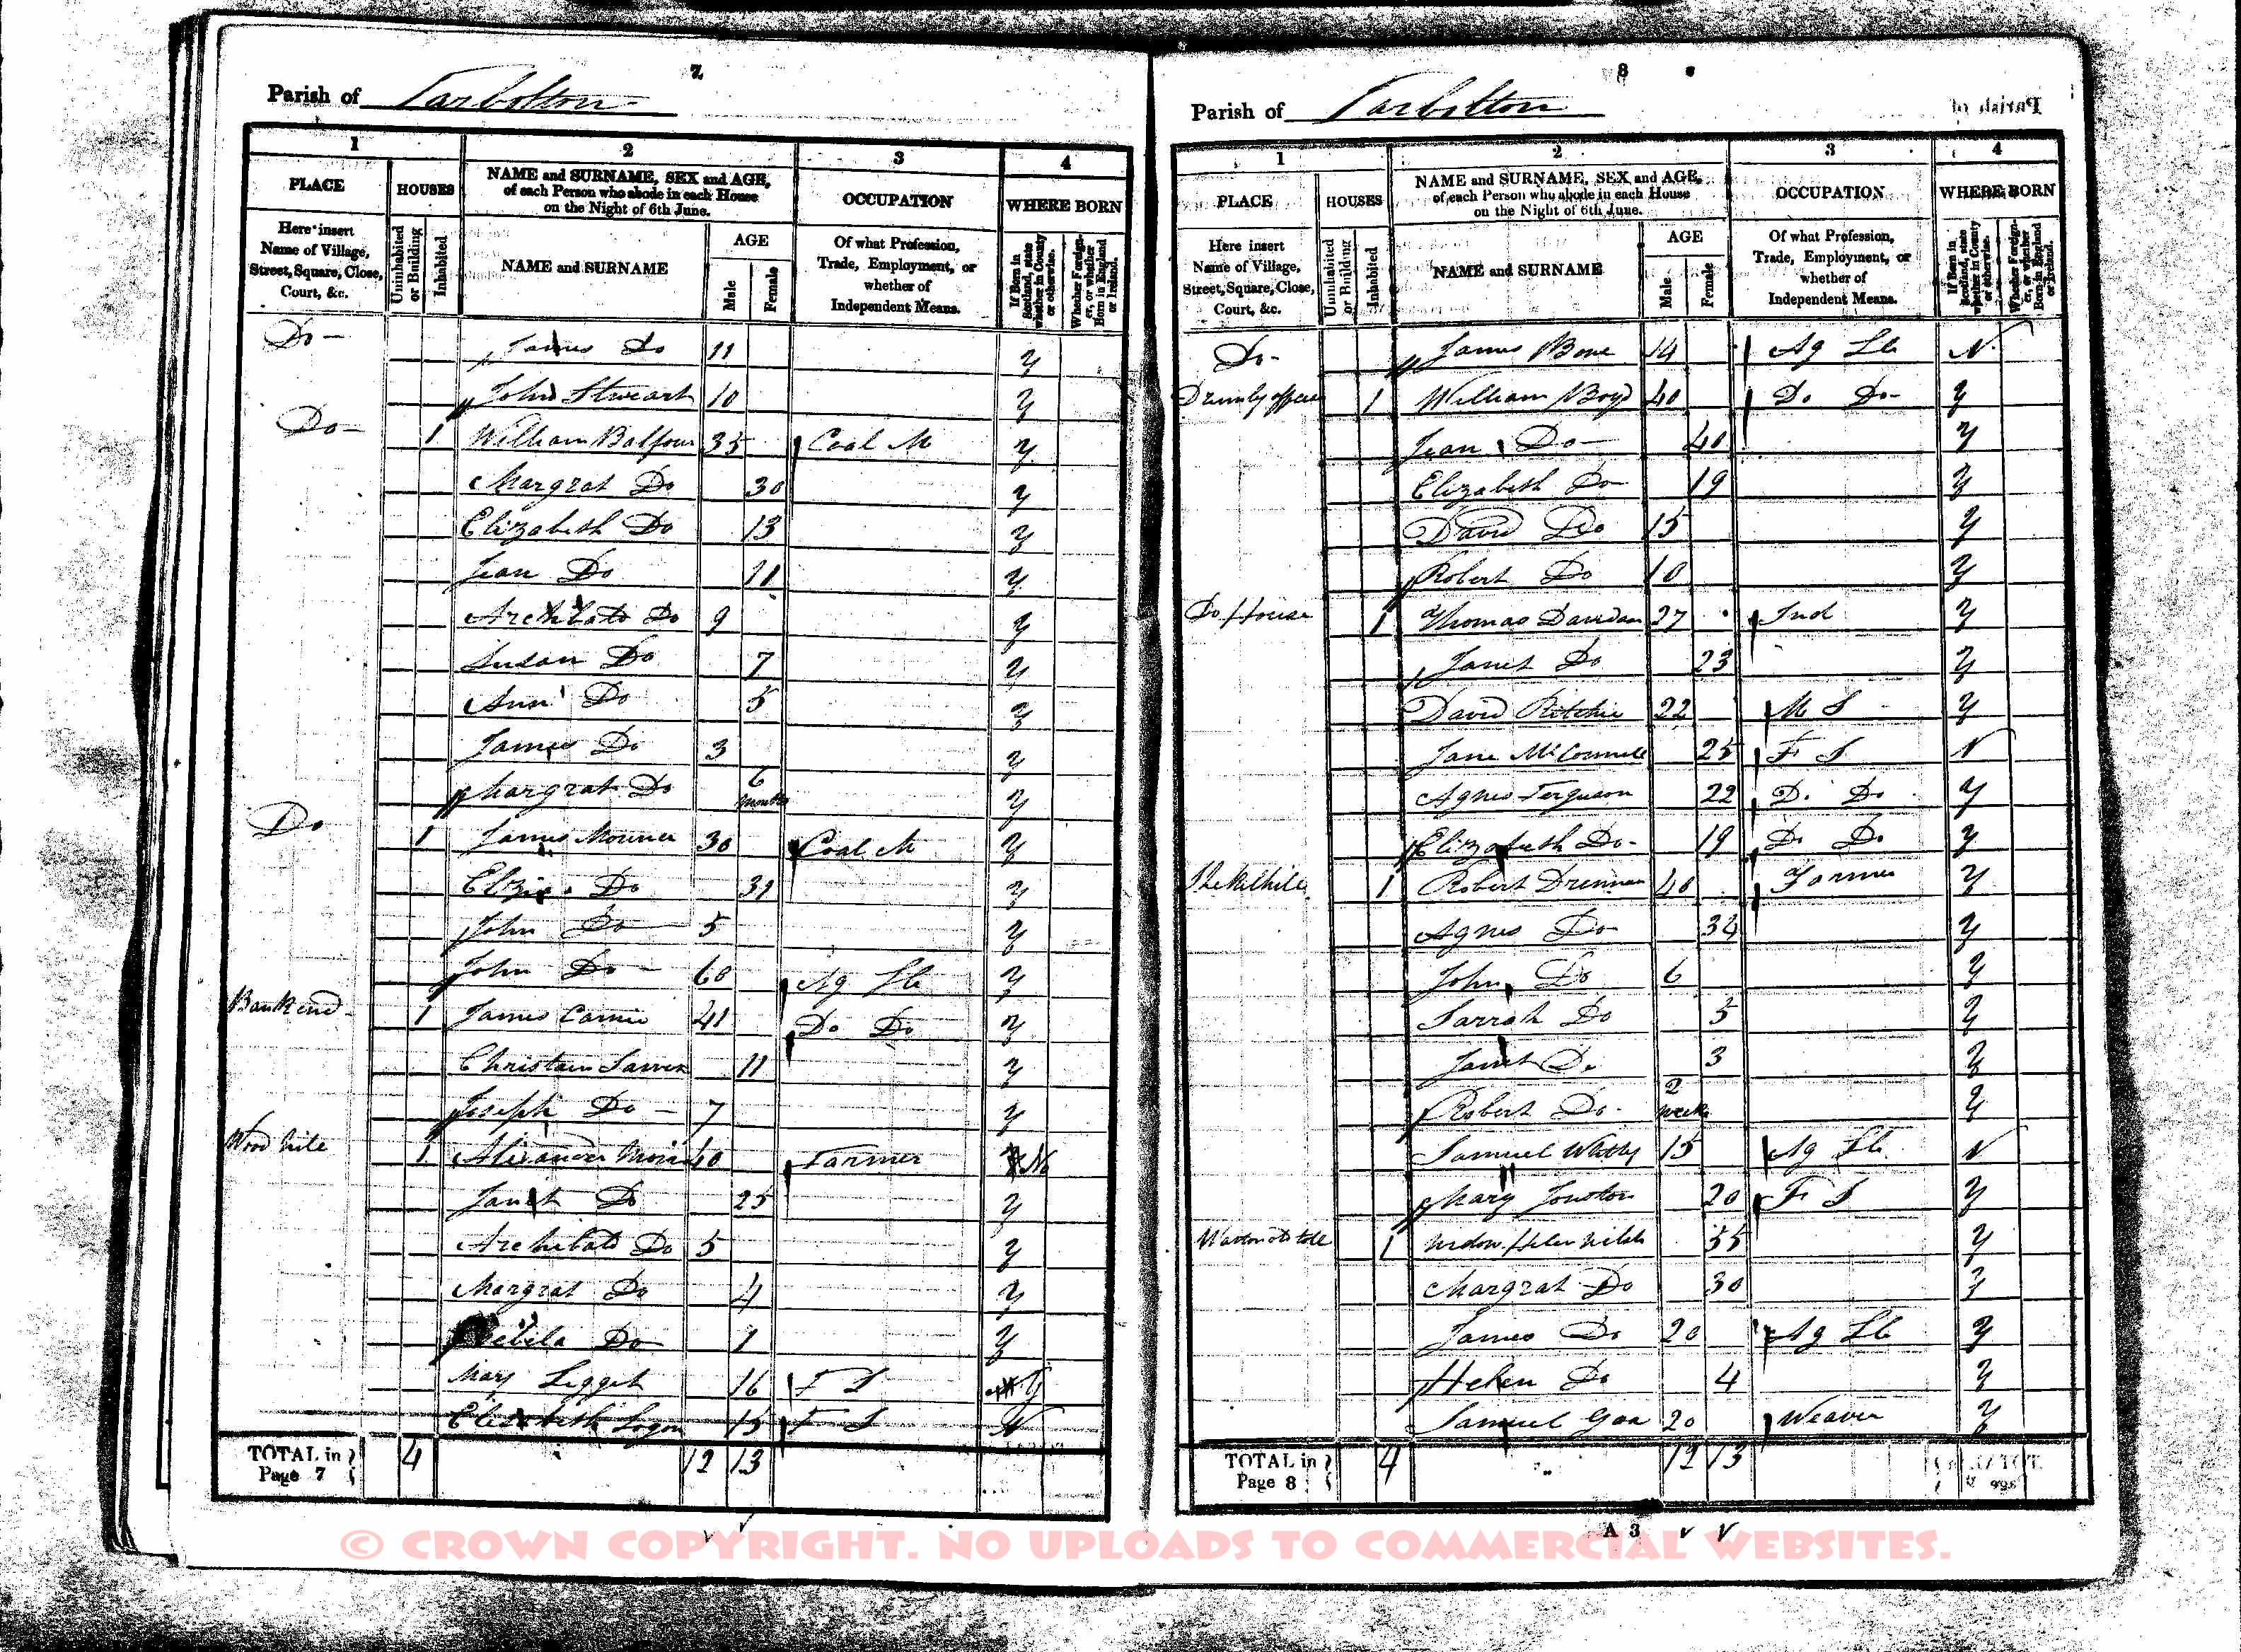 7
Parish of Tarbolton
1 2 3 4
PLACE HOUSES NAME and SURNAME, SEX and AGE, of each Person who abode in each House on the Night of 6th June. OCCUPATION WHERE BORN
Here insert Name of Village, Street, Square, Close, Court, &c. Uninhabited or Building Inhabited NAME and SURNAME AGE Male Female Of what Profession, Trade, Employment, or whether of Independent Means. If Born in Scotland, state whether in County or otherwise. Whether Foreigner, or whether Born in England or Ireland.
Do - James Do 11 y
John Stweart 10 y
Do - 1 William Balfour 35 Coal M y
Margrat Do 30 y
Elizabeth Do 13 y
Jean Do 11 y
Archibald Do 9 y
Susan Do 7 y
Ann Do 5 y
James Do 3 y
Margrat Do 6 months y
Do 1 James 30 Coal M y
Do 31 y
John Do 5 y
John Do - 60 Ag Lb y
Bankend - 1 James 41 Do Do y
11 y
Joseph Do - 7 y
Wood hill 1 Alexander 40 Farmer No
Janet Do 25 y
Archibald Do 5 y
Margrat Do 4 y
Do 1 y
Mary Legget 16 F S y
Elizabeth Logan 15 F S N
TOTAL in Page 7 4 12 13
8
Parish of Tarbolton
1 2 3 4
PLACE HOUSES NAME and SURNAME, SEX and AGE, of each Person who abode in each House on the Night of 6th June. OCCUPATION WHERE BORN
Here insert Name of Village, Street, Square, Close, Court, &c. Uninhabited or Building Inhabited NAME and SURNAME AGE Male Female Of what Profession, Trade, Employment, or whether of Independent Means. If Born in Scotland, state whether in County or otherwise. Whether Foreigner, or whether Born in England or Ireland.
Do - James Bone 14 Ag Lb N
1 William Boyd 40 Do Do - y
Jean Do - 40 y
Elizabeth Do 19 y
David Do 15 y
Robert Do 10 y
Do House 1 Thomas 27 Ind y
Janet Do 23 y
David Ritchie 22 M S y
Jane McConnell 25 F S N
Agnes Ferguson 22 Do Do y
Elizabeth Do - 19 Do Do y
1 Robert Drennan 40 Farmer y
Agnes Do 34 y
John Do 6 y
Sarrah Do 5 y
Janet Do 3 y
Robert Do - 2 weeks y
Samuel 15 Ag Lb N
Mary 20 F S y
1 Widow Helen 55 y
Margrat Do 30 y
James Do 20 Ag Lb y
Helen Do 4 y
Samuel 20 Weaver y
TOTAL in Page 8 4 12 13
A 3
© CROWN COPYRIGHT. NO UPLOADS TO COMMERCIAL WEBSITES.